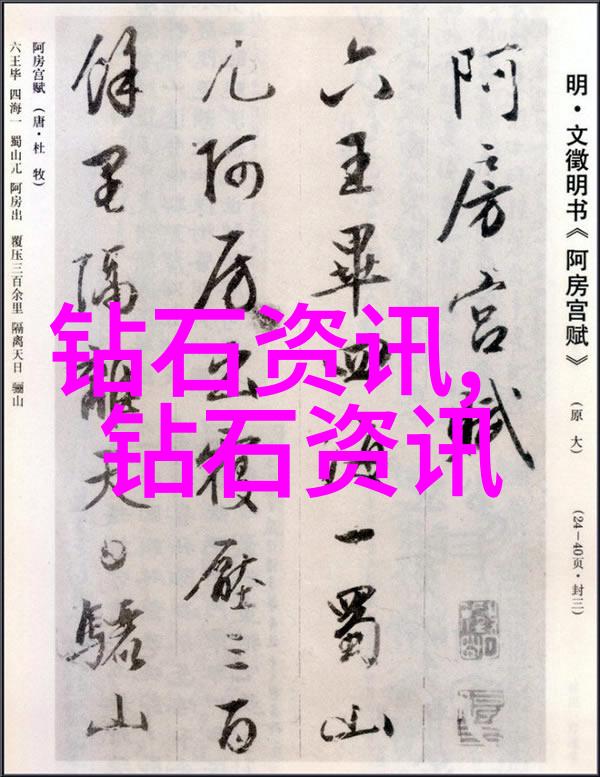 明·文徵明书《阿房宫赋》
(原大)
(24—40页·封三)
阿房宫賦
六王畢四海一蜀山
兀阿房出覆壓三百
餘里隔離天日驪山
阿房宫赋(唐·杜牧)
六王毕 四海一 蜀山兀 阿房出 覆压三百余里 隔离天日 骊山
钻石资讯,
钻石资讯